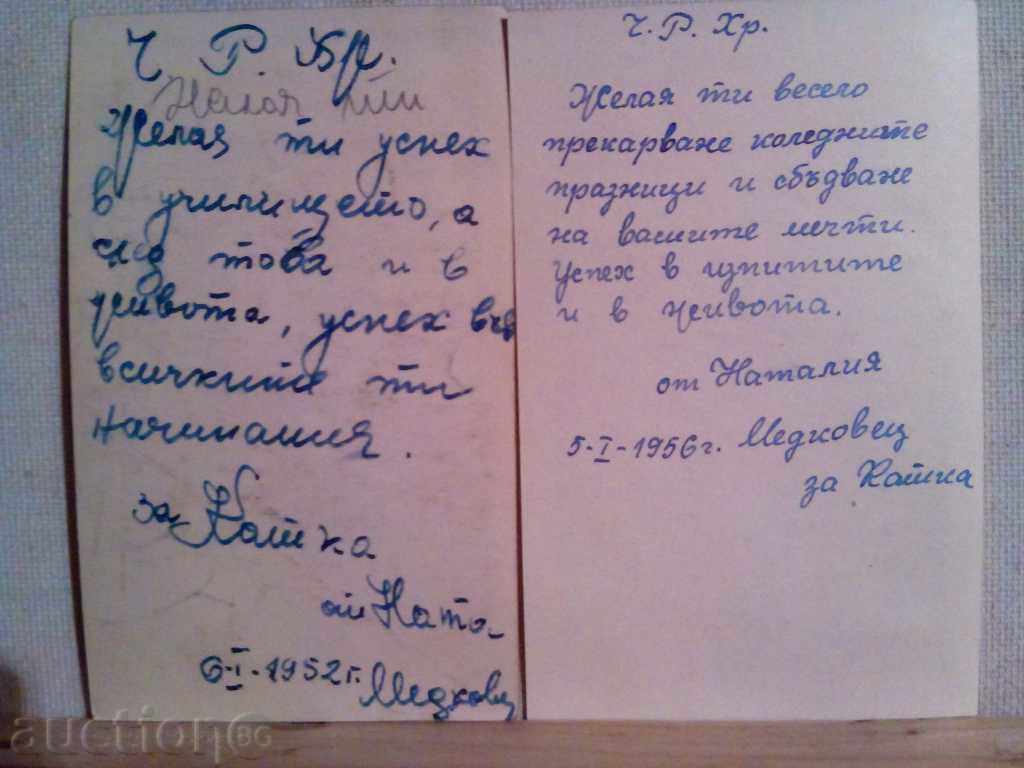 Ч. Р. Хр.
Желая ти успех
в училището, а
след това и в
живота, успех във
всичките ти
начинания.
за Катка
от Ната
6-I-1952 г. Медковец
Ч. Р. Хр.
Желая ти весело
прекарване коледните
празници и сбъдване
на вашите мечти.
Успех в изпитите
и в живота.
от Наталия
5-I-1956 г. Медковец
за Катка
auction.bg